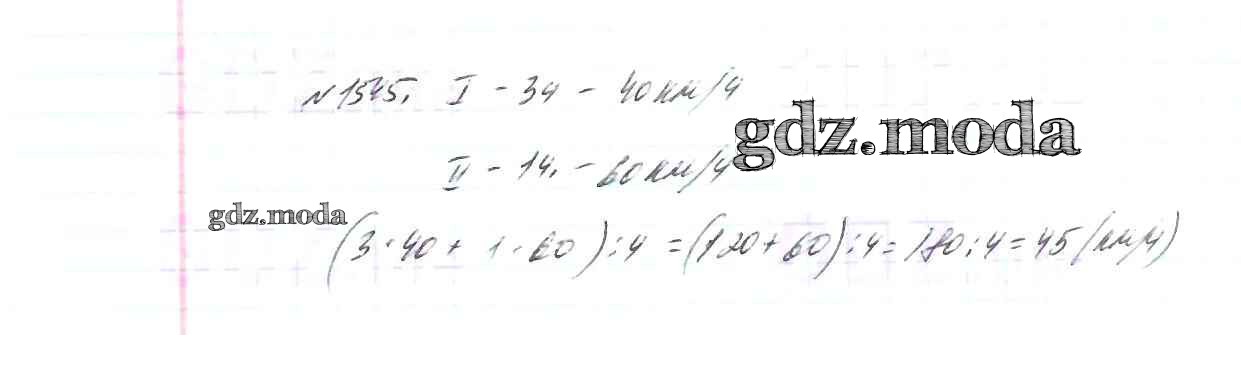 №1545. I - 3ч - 40 км/ч
gdz.moda
II - 1ч. - 60 км/ч
gdz.moda
(3·40 + 1·60):4 = (120+60):4 = 180:4 = 45 (км/ч)